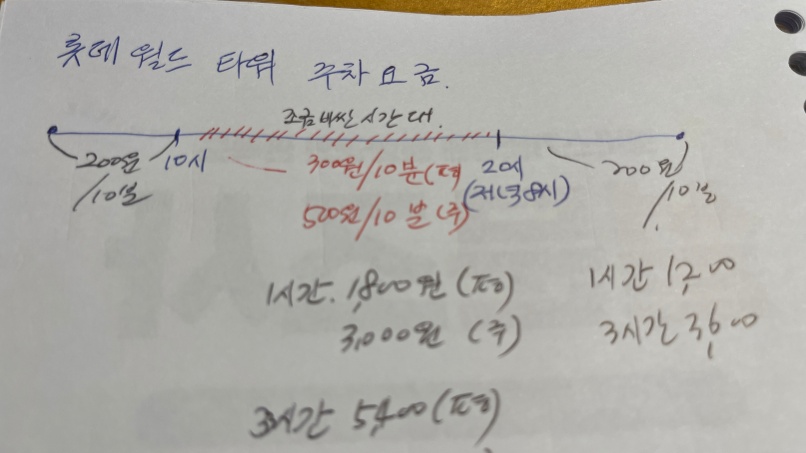 롯데월드 타워 주차요금.
조금 비싼 시간대.
200원/10분
10시
300원/10분 (평)
500원/10분 (주)
20시 (저녁 8시)
200원/10분.
1시간. 1,800원 (평)
3,000원 (주)
3시간 5,400 (평)
1시간 1,200
3시간 3,600